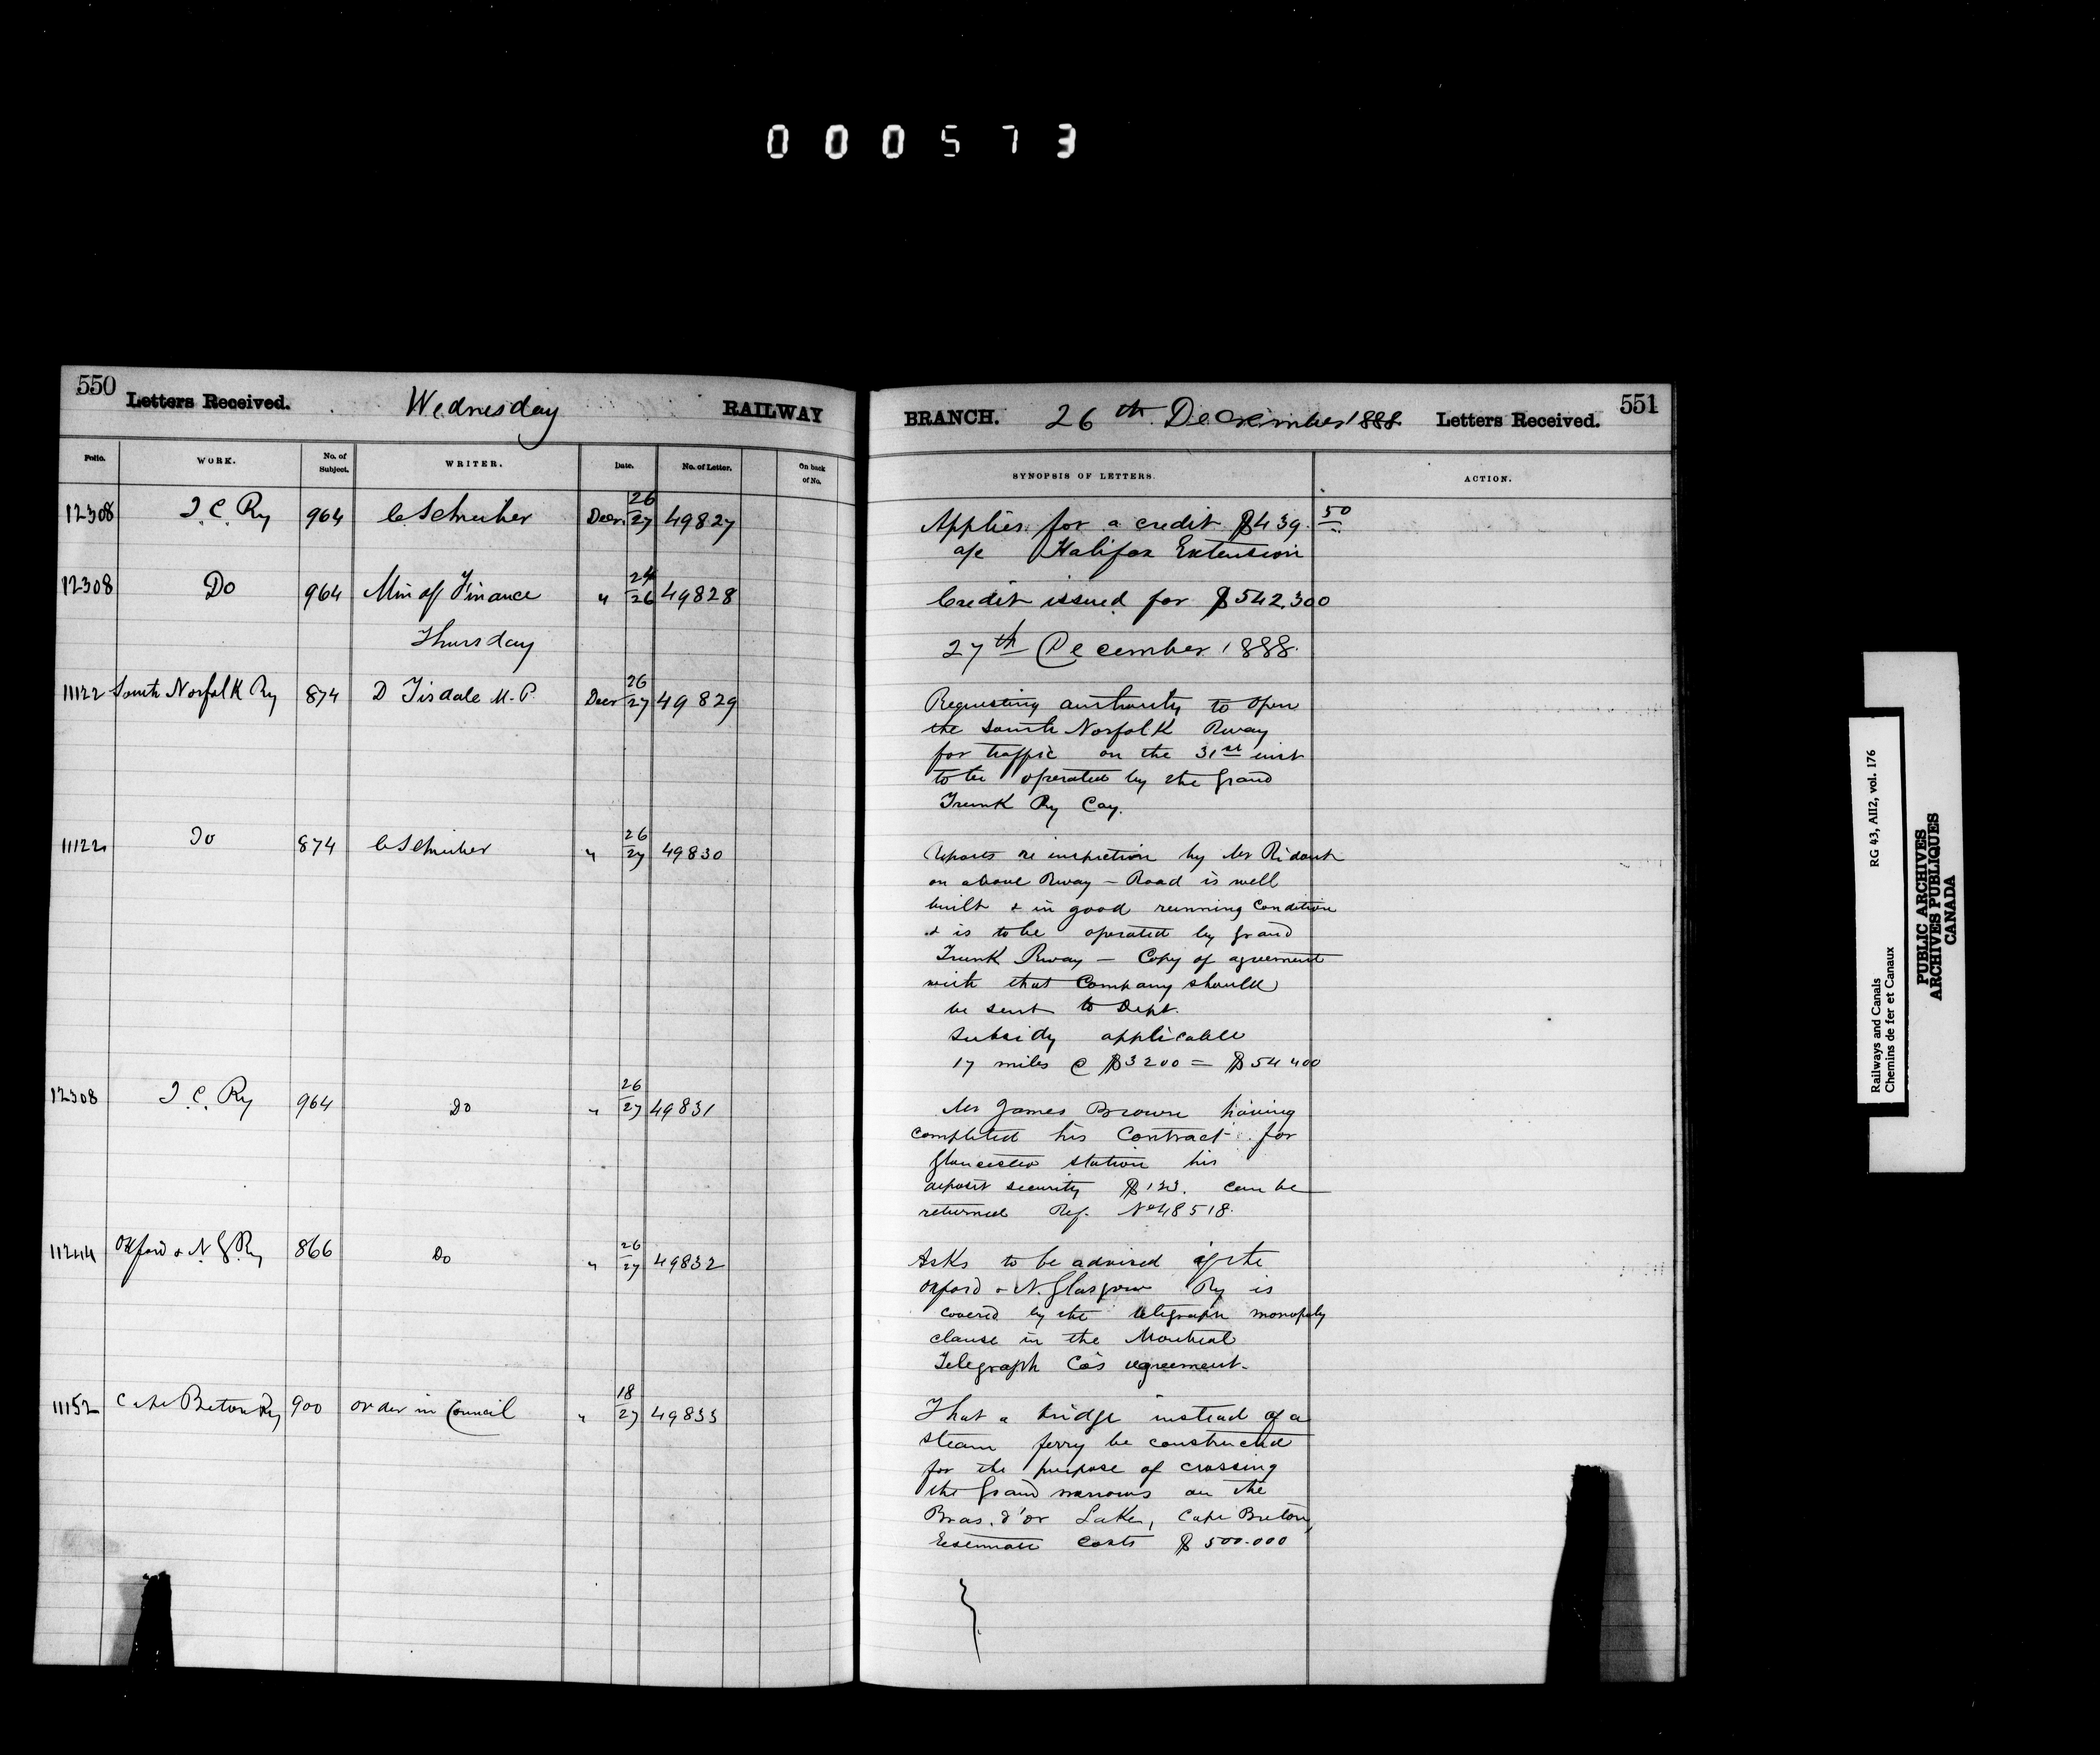 000573
550 Letters Received. Wednesday RAILWAY
Folio. WORK. No. of Subject. WRITER. Date. No. of Letter. On back of No.
12308 I.C. Ry 964 C Schreiber Decr 26/27 49827
12308 Do 964 Min of Finance " 24/26 49828
Thursday
11122 South Norfolk Ry 874 D Tisdale M.P. Decr 26/27 49829
11122 Do 874 C Schreiber " 26/27 49830
12308 I.C. Ry 964 Do " 26/27 49831
11244 Oxford & N.G. Ry 866 Do " 26/27 49832
11152 Cape Breton Ry 900 Order in Council " 18/27 49833
BRANCH. 26th December 1888 Letters Received. 551
SYNOPSIS OF LETTERS. ACTION.
Applies for a credit $439.50
a/c Halifax Extension
Credit issued for $542.300
27th December 1888.
Requesting authority to open
the South Norfolk Rway
for traffic on the 31st inst
to be operated by the Grand
Trunk Ry Coy.
Reports re inspection by Mr Ridout
on above Rway – Road is well
built & in good running condition
& is to be operated by Grand
Trunk Rway – Copy of agreement
with that Company should
be sent to Dept.
Subsidy applicable
17 miles @ $3200 = $54400
Mr James Brown having
completed his Contract for
Gloucester station his
deposit security can be
returned Ref. No 48518.
Asks to be advised if the
Oxford & N. Glasgow Ry is
covered by the telegraph monopoly
clause in the Montreal
Telegraph Co's agreement.
That a bridge instead of a
steam ferry be constructed
for the purpose of crossing
the Grand narrows on the
Bras. d'or Lake, Cape Breton,
Estimate costs $500.000
Railways and Canals RG 43, AII2, vol. 176
Chemins de fer et Canaux
PUBLIC ARCHIVES
ARCHIVES PUBLIQUES
CANADA